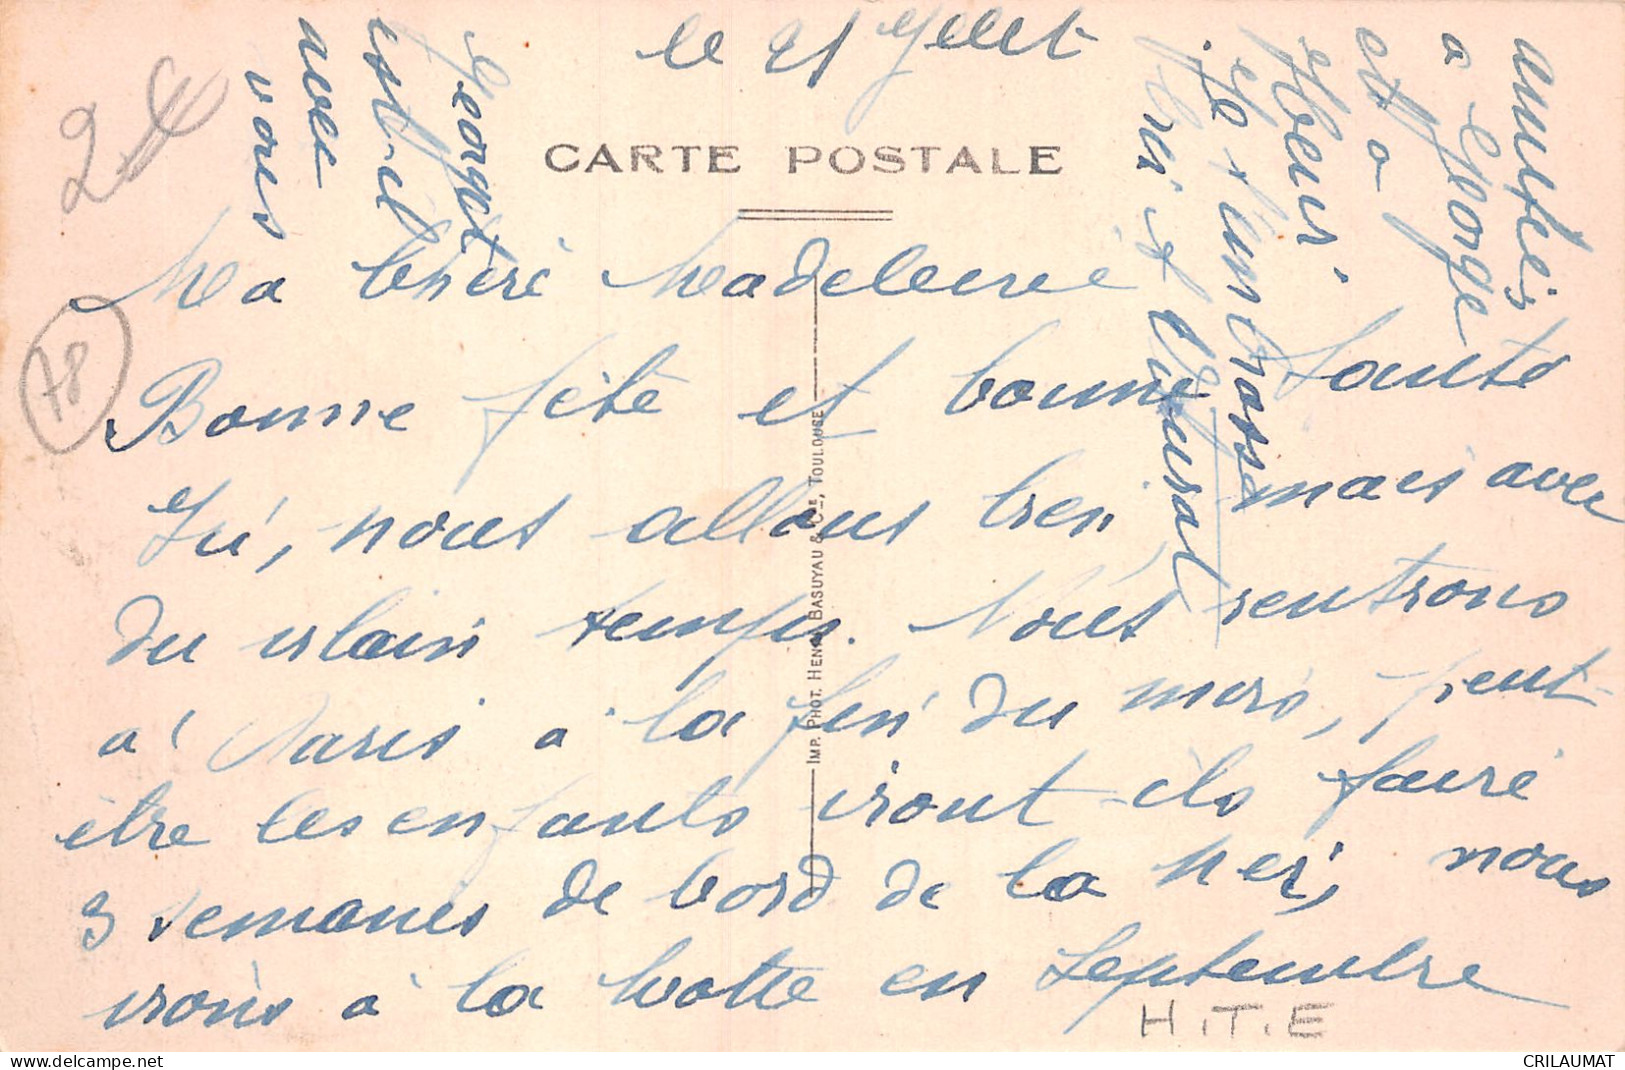 le 21 Juillet
CARTE POSTALE
Ma chère Madeleine
Bonne fête et bonne santé
Ici, nous allons bien, mais avec
du vilain temps. Nous rentrons
à Paris à la fin du mois, peut-
être les enfants iront-ils faire
3 semaines de bord de la Mer, nous
irons à la Motte en Septembre
Amitiés
à George
et à
Henri
Je t'embrasse
Georget
est-il
avec
vous
2€
78
IMP. PHOT. HENRI BASUYAU & Cie, TOULOUSE
H.T.E
CRILAUMAT